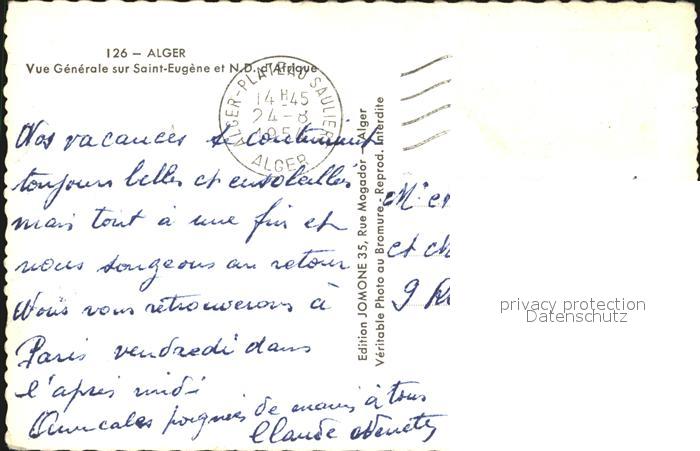 126 — ALGER
Vue Générale sur Saint-Eugène et N.D. d'Afrique
ALGER-PLATEAU SAULIERE
14 H 45
24-8
ALGER
Nos vacances se continuent
toujours belles et ensoleillées
mais tout à une fin et
nous songeons au retour
Nous vous retrouverons à
Paris vendredi dans
l'après midi
Amicales poignées de mains à tous
Claude
Edition JOMONE 35, Rue Mogador - Alger
Véritable Photo au Bromure - Reprod. Interdite
et
9
privacy protection
Datenschutz